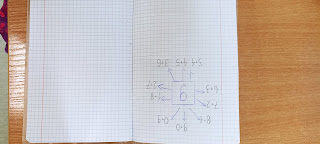 9+0
0+9
8+1
7+2
9
1+8
6+3
2+7
5+4 4+5 3+6